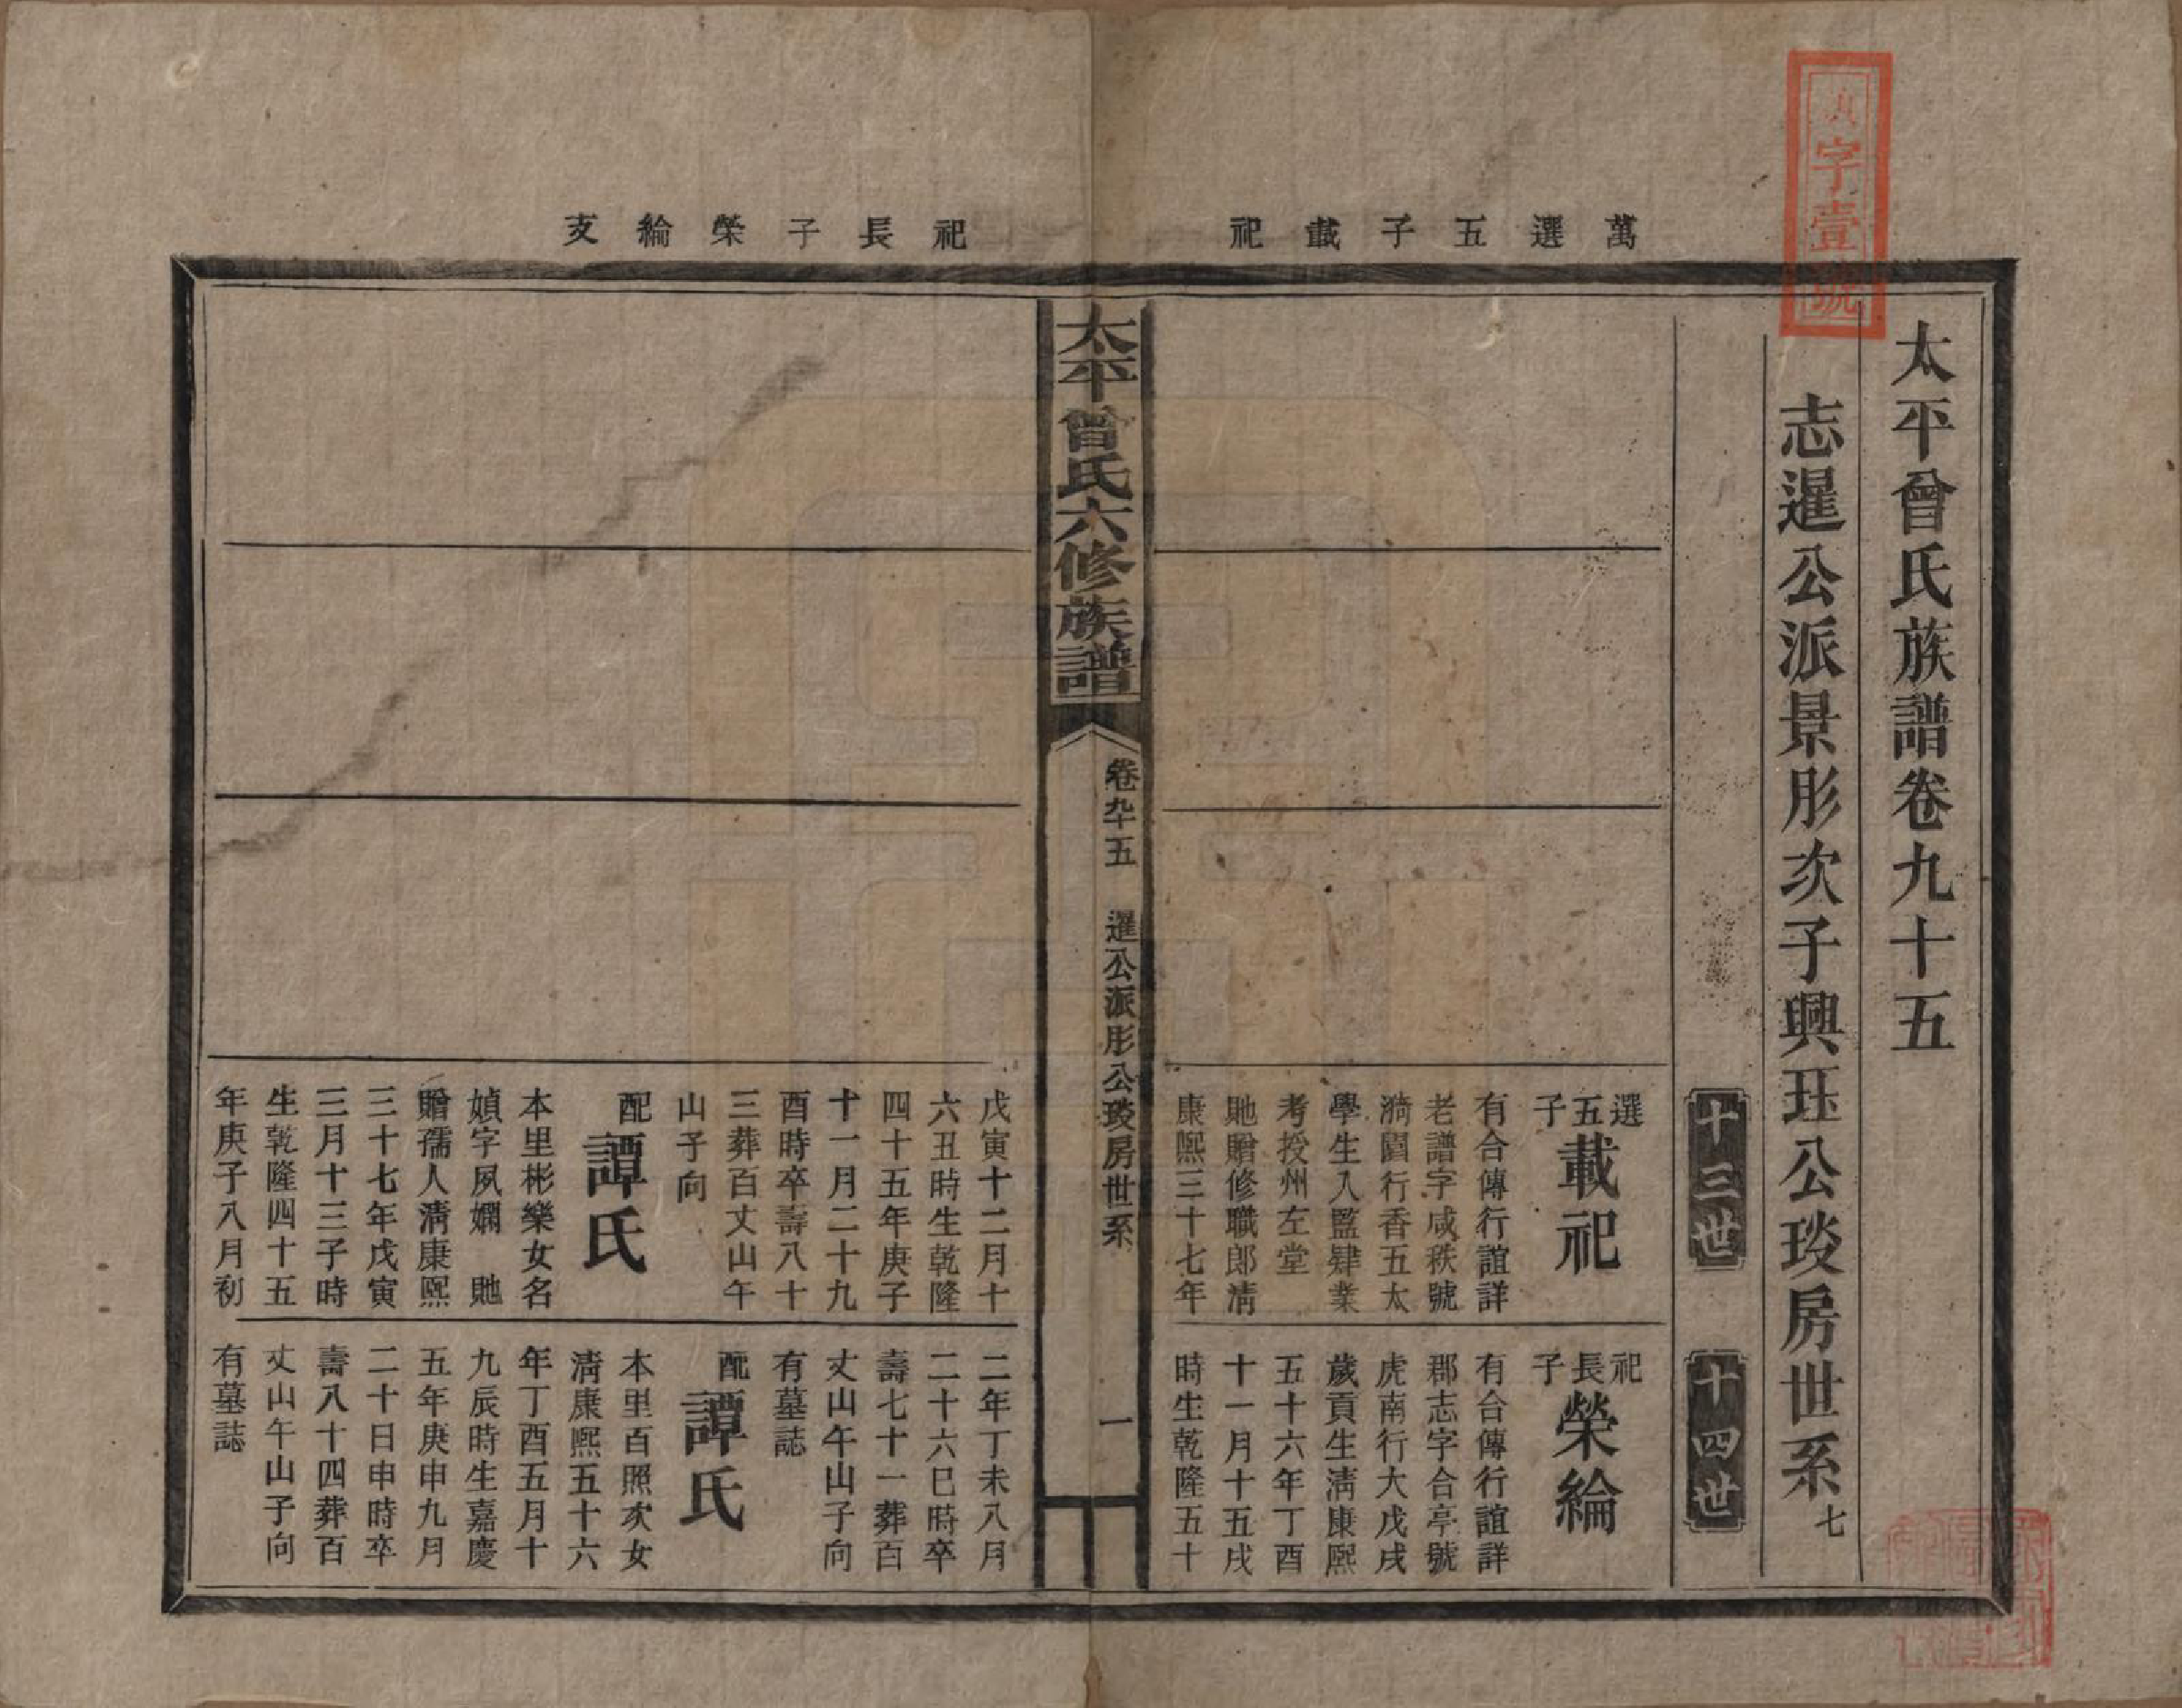 萬選五子載祀
祀長子榮綸支
字壹號
太平曾氏族譜卷九十五
志暹公派景彤次子興珏公琰房世系七
十三世
十四世
選五子載祀
有合傳行誼詳
老譜字咸秩號
漪園行香五太
學生入監肄業
考授州左堂
貤贈修職郎清
康熙三十七年
祀長子榮綸
有合傳行誼詳
郡志字合亭號
虎南行大戊戌
歲貢生清康熙
五十六年丁酉
十一月十五戌
時生乾隆五十
太平曾氏六修族譜
卷九十五
暹公派彤公琰房世系
一
戊寅十二月十
六丑時生乾隆
四十五年庚子
十一月二十九
酉時卒壽八十
三葬百丈山午
山子向
配譚氏
本里彬樂女名
媜字夙嫻 貤
贈孺人清康熙
三十七年戊寅
三月十三子時
生乾隆四十五
年庚子八月初
二年丁未八月
二十六巳時卒
壽七十一葬百
丈山午山子向
有墓誌
配譚氏
本里百照次女
清康熙五十六
年丁酉五月十
九辰時生嘉慶
五年庚申九月
二十日申時卒
壽八十四葬百
丈山午山子向
有墓誌